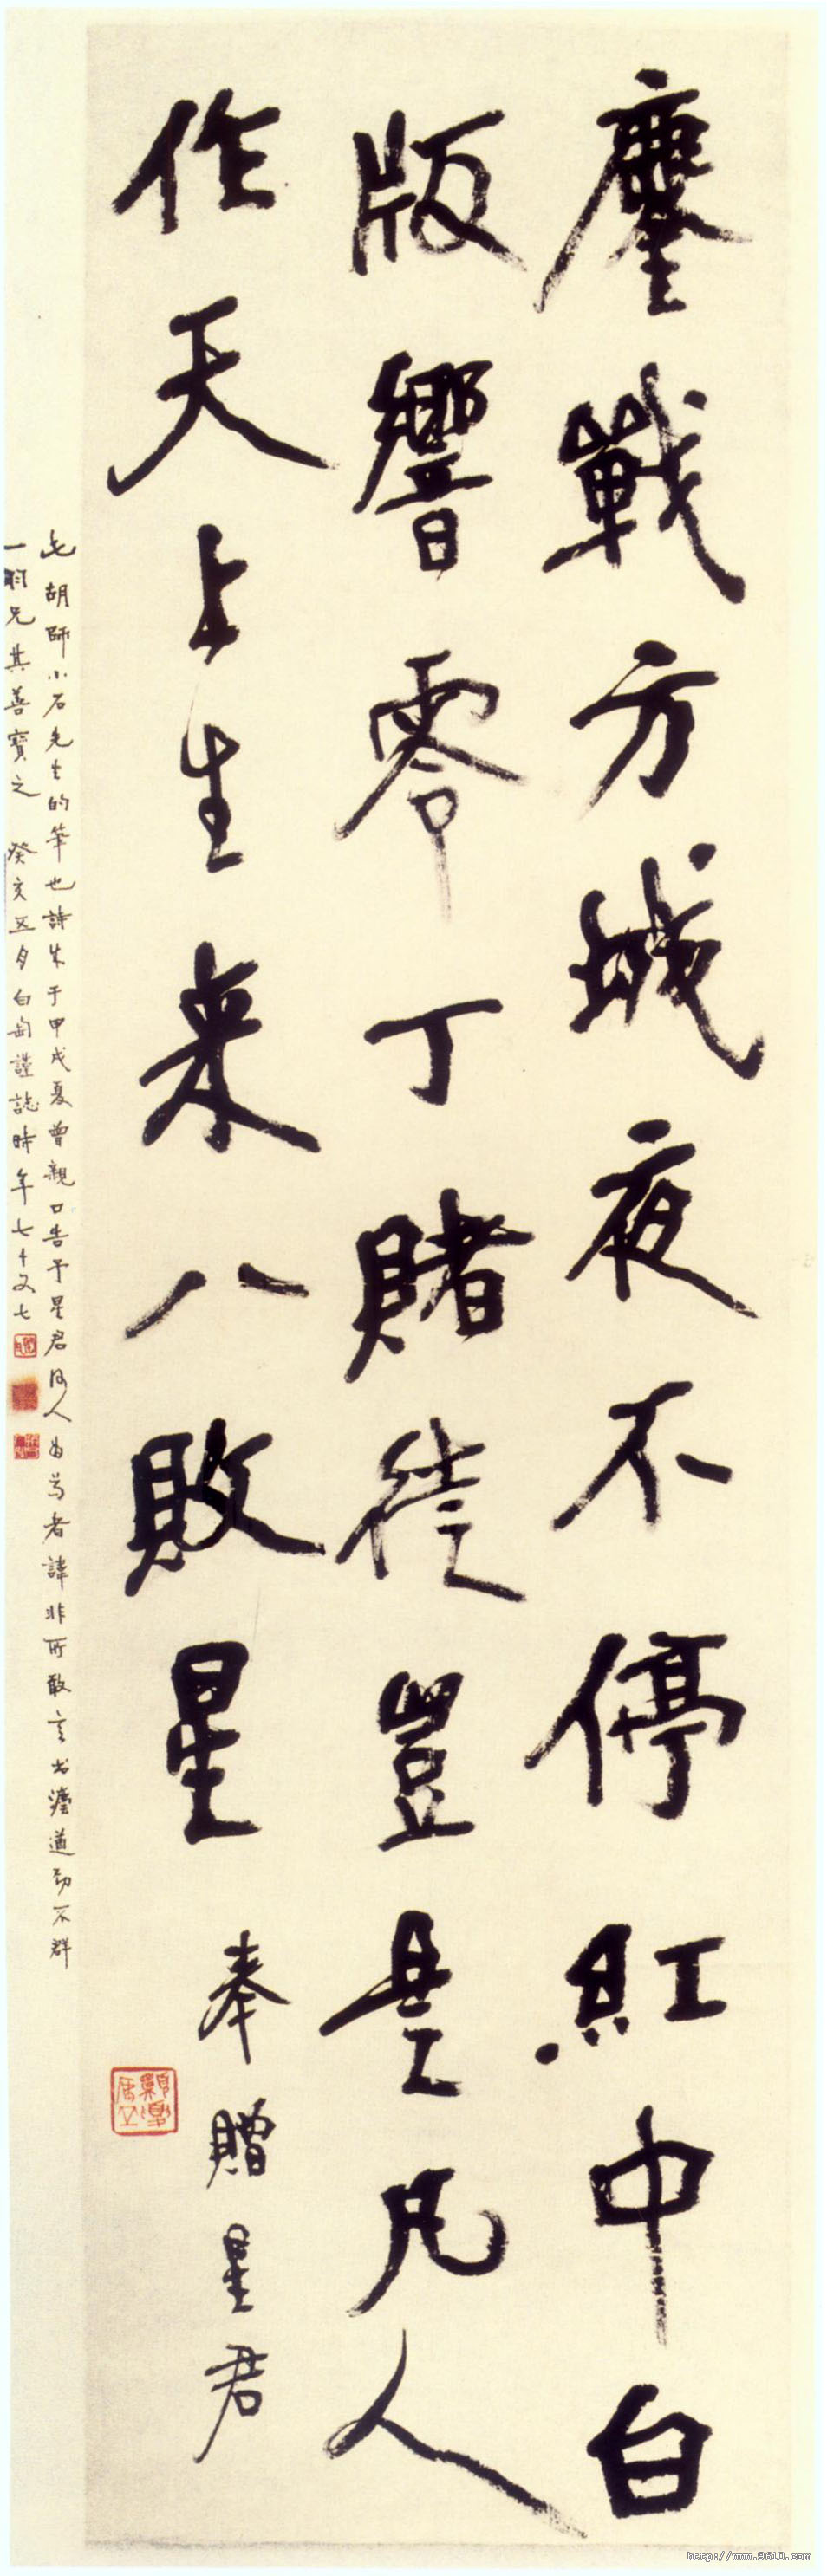 鏖戰方城夜不停紅中白
版響零丁賭徒豈是凡人
作天上生來八敗星
奉贈星君
此胡師小石先生的筆也詩成于甲戌夏曾親口告予星君何人為尊者諱非所敢言書法遒勁不群
一羽兄其善寶之 癸亥五月白匋謹誌時年七十又七
http://www.9610.com